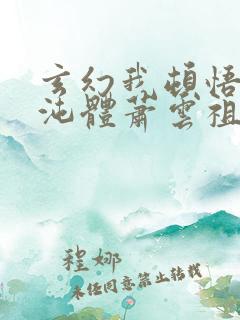 玄幻我頓悟
沌體蕭雲祖
程娜
未经同意禁止转载